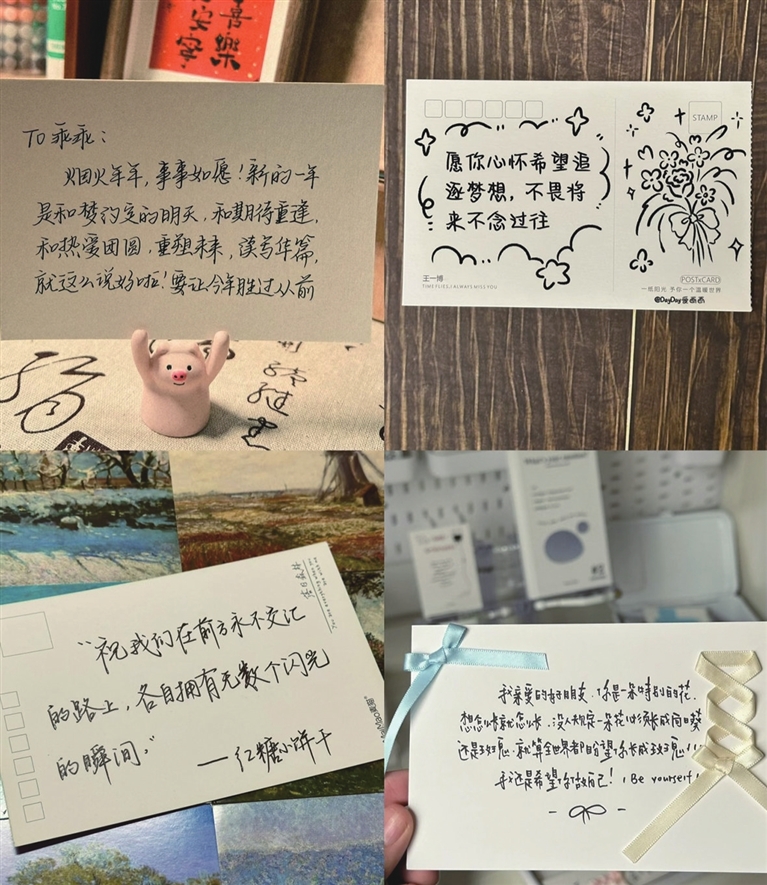 喜樂
平安
To 乖乖：
烟火年年，事事如愿！新的一年
是和梦约定的明天，和期待重逢，
和热爱团圆，重塑未来，谱写华篇，
就这么说好啦！要让今年胜过从前
STAMP
愿你心怀希望追
逐梦想，不畏将
来不念过往
王一博
TIME FLIES, I ALWAYS MISS YOU
POSTxCARD
一绘阳光 予你一个温暖世界
@DayDay爱画画
“祝我们在前方永不交汇
的路上，各自拥有无数个闪光
的瞬间”
——红糖小饼干
我亲爱的好朋友，你是一朵特别的花，
想怎么长就怎么长，没人规定一朵花必须长成向日葵
还是玫瑰，就算全世界都盼望你长成玫瑰
我还是希望你做自己！（Be yourself）